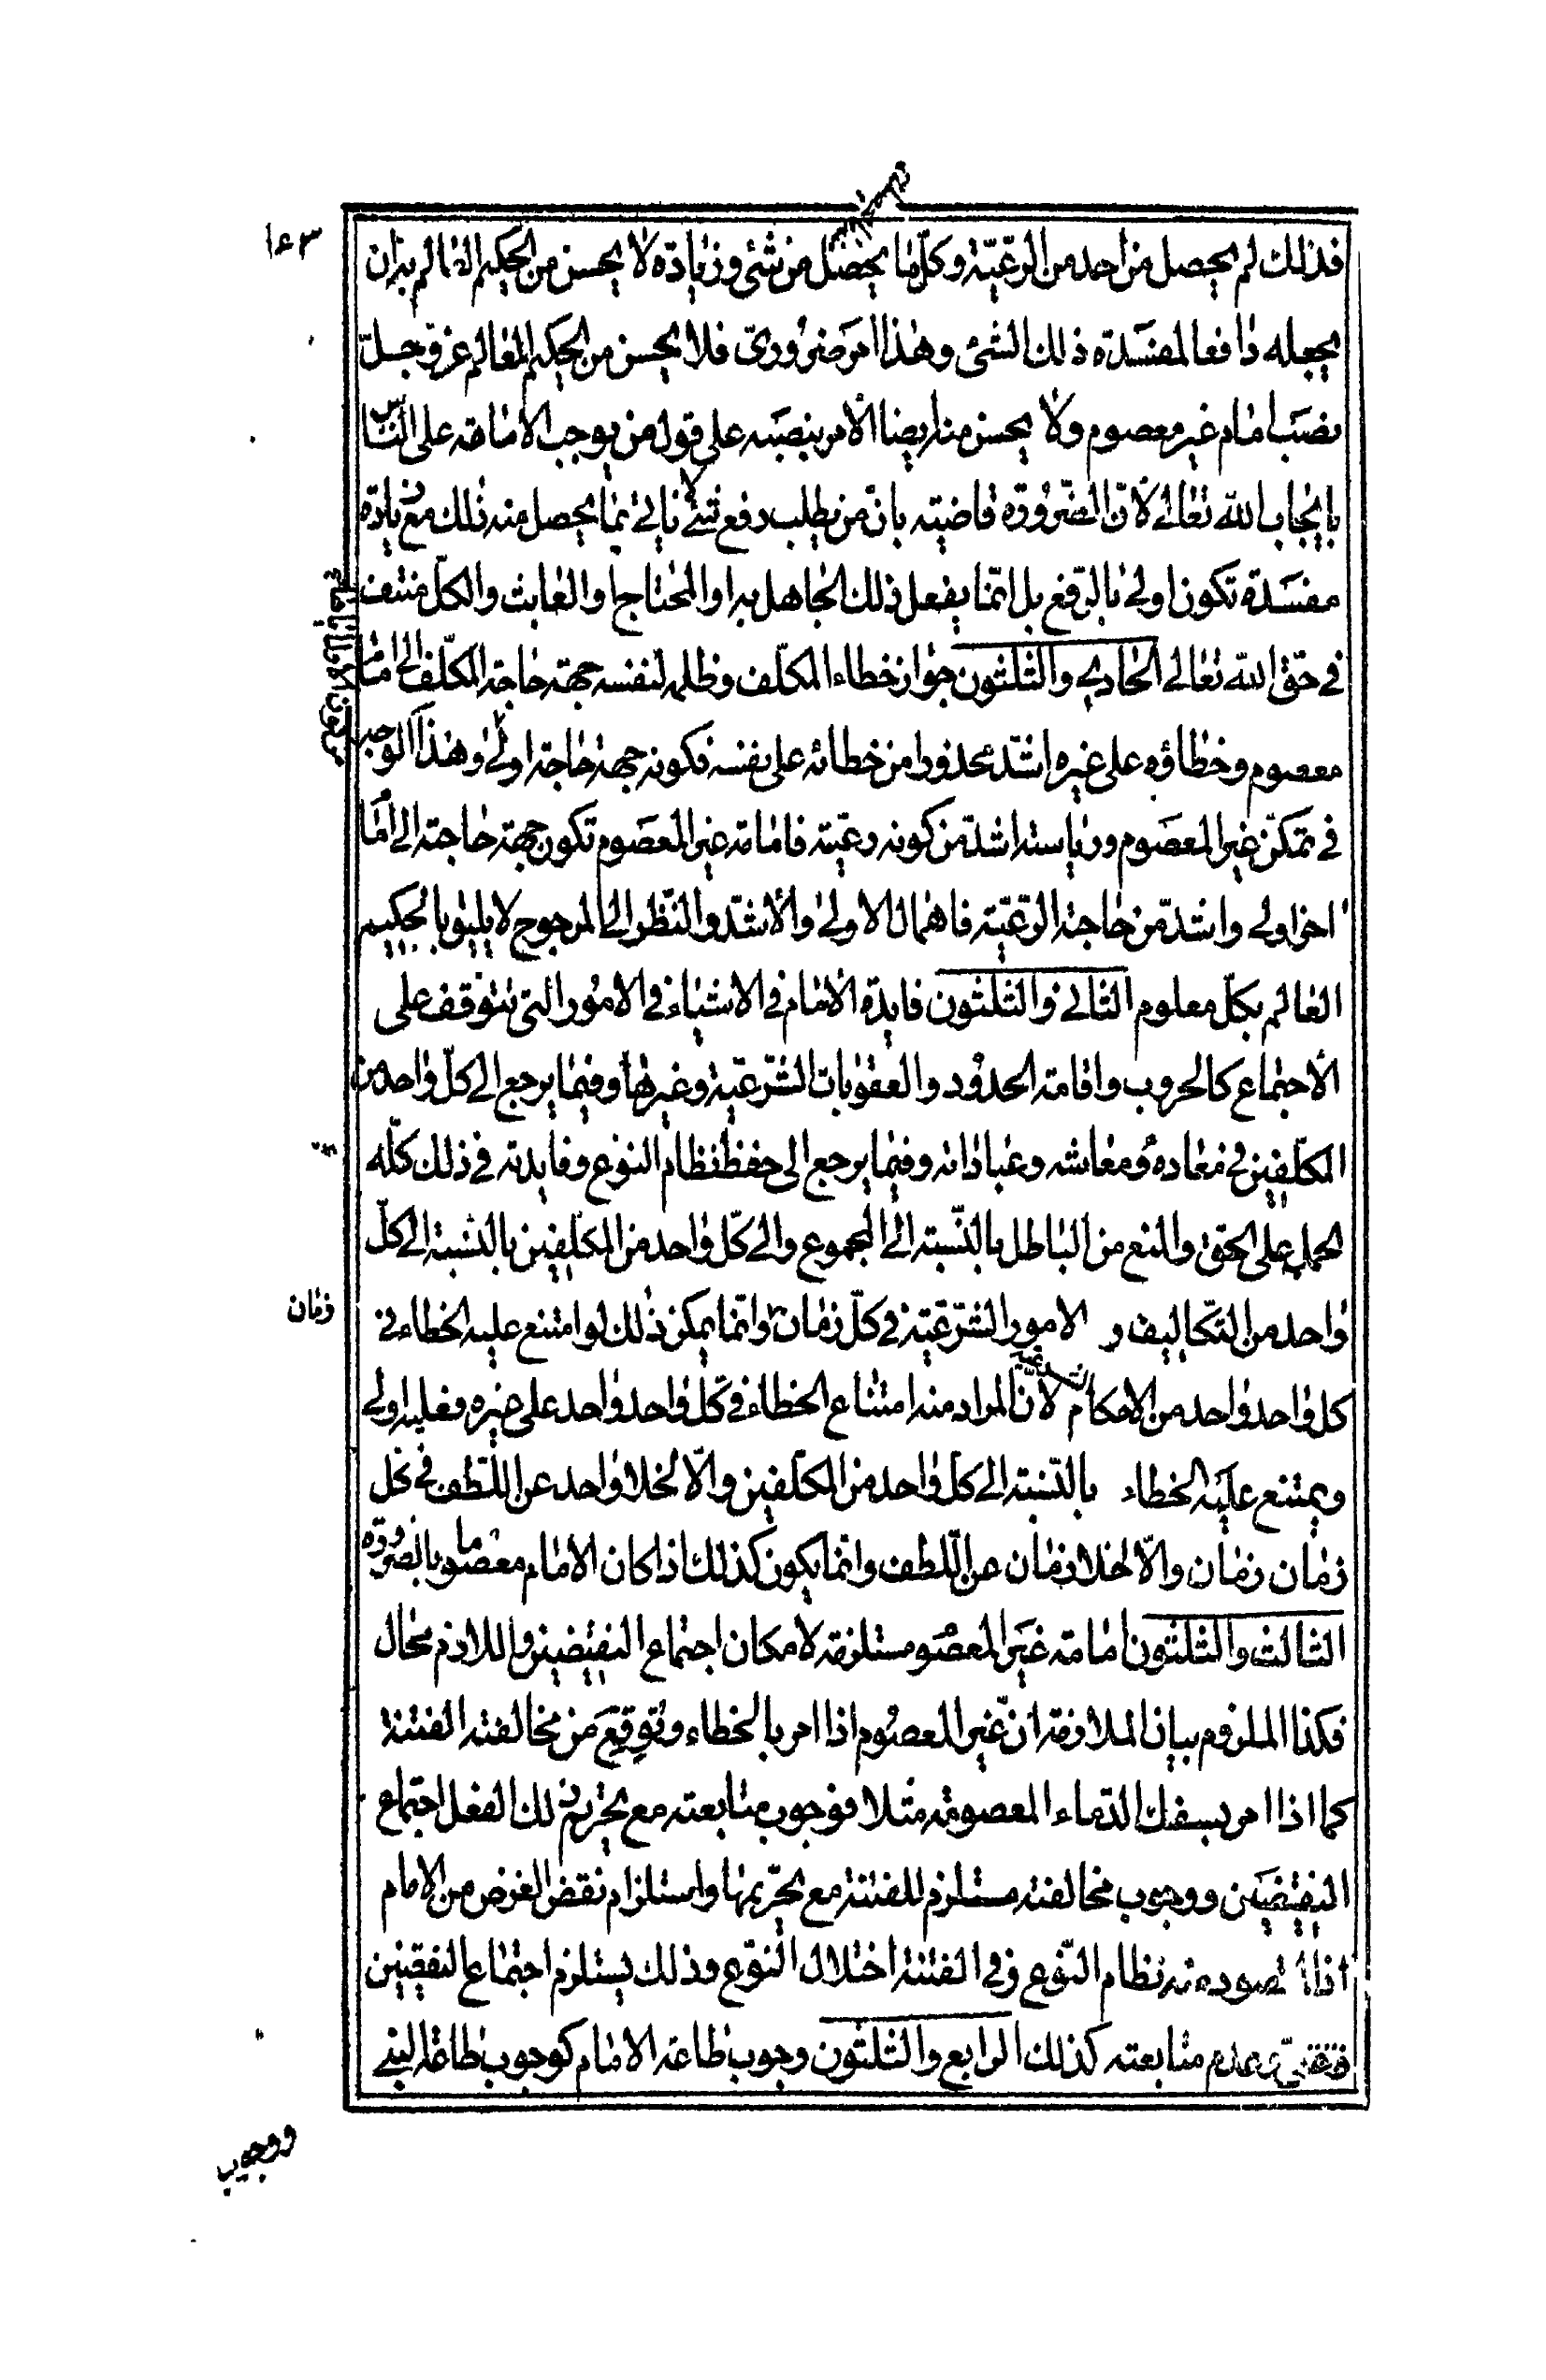 ١٤٣
فذلك لم يحصل من احد من الرعيّة وكلّما يحصل من شئ وزيادة لا يحسن من الحكيم العالم به ان
يجعله دافعا لمفسدة ذلك الشئ وهذا امر ضرورىّ فلا يحسن من الحكيم العالم عزّ وجلّ
نصب امام غير معصوم ولا يحسن منه ايضا الامر بنصبه على قول من يوجب الامامة على الناس
بايجاب الله تعالى لانّ الضّرورة قاضية بانّ من يطلب دفع شئ لا ياتى بما يحصل منه ذلك مع زيادة
مفسدة تكون اولى بالدفع بل انّما يفعل ذلك الجاهل به او المحتاج او العابث والكلّ منتف
فى حقّ الله تعالى الحادى والثلثون جواز خطاء المكلّف وظلمه لنفسه جهة حاجة المكلّف الى امام
معصوم وخطاؤه على غيره اشدّ محذورا من خطائه على نفسه فكونه جهة حاجة اولى وهذا الوجه
فى تمكّن غير المعصوم ورياسته اشدّ من كونه رعيّة فامامة غير المعصوم تكون جهة حاجته الى امام
اخر اولى واشدّ من حاجة الرّعيّة فاهمال الاولى والاشدّ والنّظر الى المرجوح لا يليق بالحكيم
العالم بكلّ معلوم الثانى والثلثون فايدة الامام فى الاشياء فى الامور التى تتوقف على
الاجتماع كالحروب واقامة الحدود والعقوبات الشّرعيّة وغيرها وفيما يرجع الى كلّ واحد من
المكلّفين فى معاده ومعاشه وعباداته وفيما يرجع الى حفظ نظام النوع وفايدته فى ذلك كلّه
الحمل على الحق والمنع من الباطل بالنّسبة الى المجموع والى كلّ واحد من المكلّفين بالنسبة الى كلّ
واحد من التكاليف و الامور الشّرعيّة فى كلّ زمان وانّما يمكن ذلك لو امتنع عليه الخطاء فى
زمان
كل واحد واحد من الاحكام الشرعية لانّ المراد منه امتناع الخطاء فى كلّ واحد واحد على غيره فعليه اولى
ويمتنع عليه الخطاء بالنّسبة الى كلّ واحد من المكلّفين والّا لخلا واحد عن اللّطف فى كل
زمان زمان والّا لخلا زمان عن اللّطف وانّما يكون كذلك اذا كان الامام معصوما بالضرورة
الثالث والثلثون امامة غير المعصوم مستلزمة لامكان اجتماع النقيضين واللازم محال
فكذا الملزوم بيان الملازمة انّ غير المعصوم اذا امر بالخطاء وتوقع من مخالفته الفتنة
كما اذا امر بسفك الدّماء المعصومة مثلا فوجوب متابعته مع تحريم ذلك الفعل اجتماع
النقيضين ووجوب مخالفته مستلزم للفتنة مع تحريمها واستلزام نقض الغرض من الامام
اذ المقصود منه نظام النّوع وفى الفتنة اختلال النّوع وذلك يستلزم اجتماع النقيضين
عدم متابعته كذلك الرابع والثلثون وجوب طاعة الامام كوجوب طاعة النبى
ووجوب